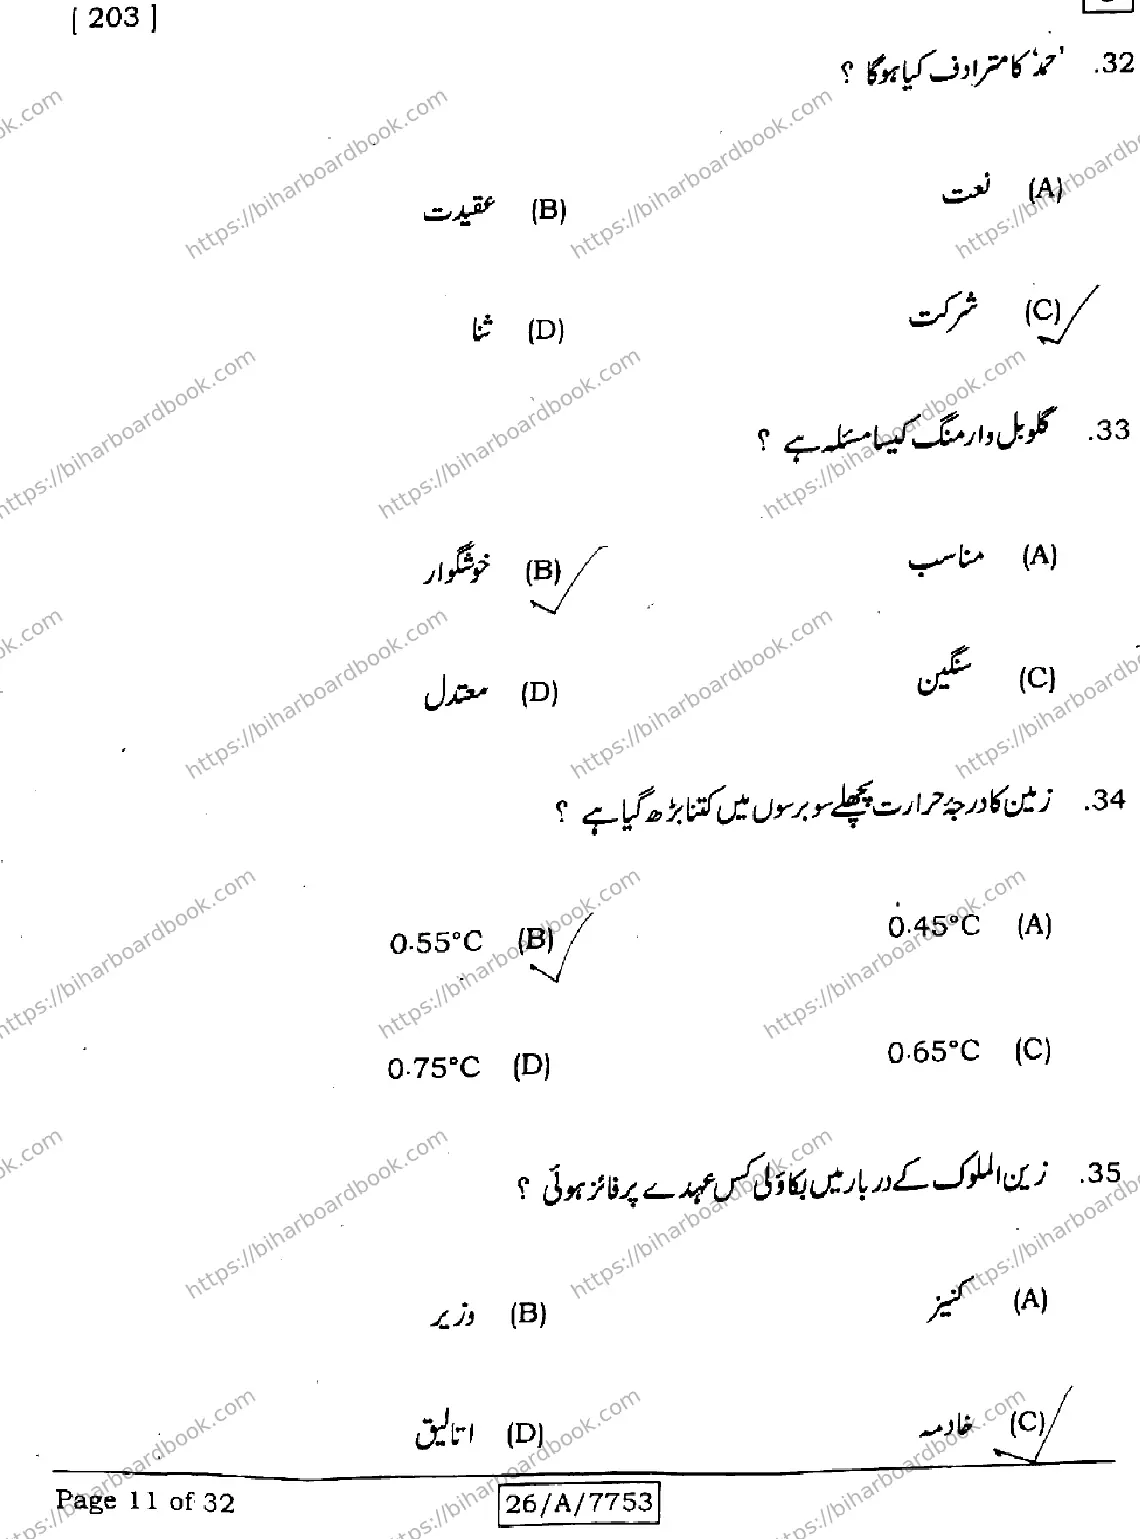 [ 203 ]
32. 'حمد' کا مترادف کیا ہوگا ؟
(A) نعت (B) عقیدت
(C) شرکت (D) ثنا
33. گلوبل وارمنگ کیسا مسئلہ ہے ؟
(A) مناسب (B) خوشگوار
(C) سنگین (D) معتدل
34. زمین کا درجۂ حرارت پچھلے سو برسوں میں کتنا بڑھ گیا ہے ؟
(A) 0·45°C (B) 0·55°C
(C) 0·65°C (D) 0·75°C
35. زین الملوک کے دربار میں بکاؤلی کس عہدے پر فائز ہوئی ؟
(A) کنیز (B) وزیر
(C) خادمہ (D) اتالیق
Page 11 of 32
26/A/7753
https://biharboardbook.com